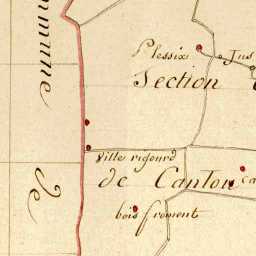 Plessix
Jus
Section
Ville rigourd
de Canton
ca
bois froment
mmune
de